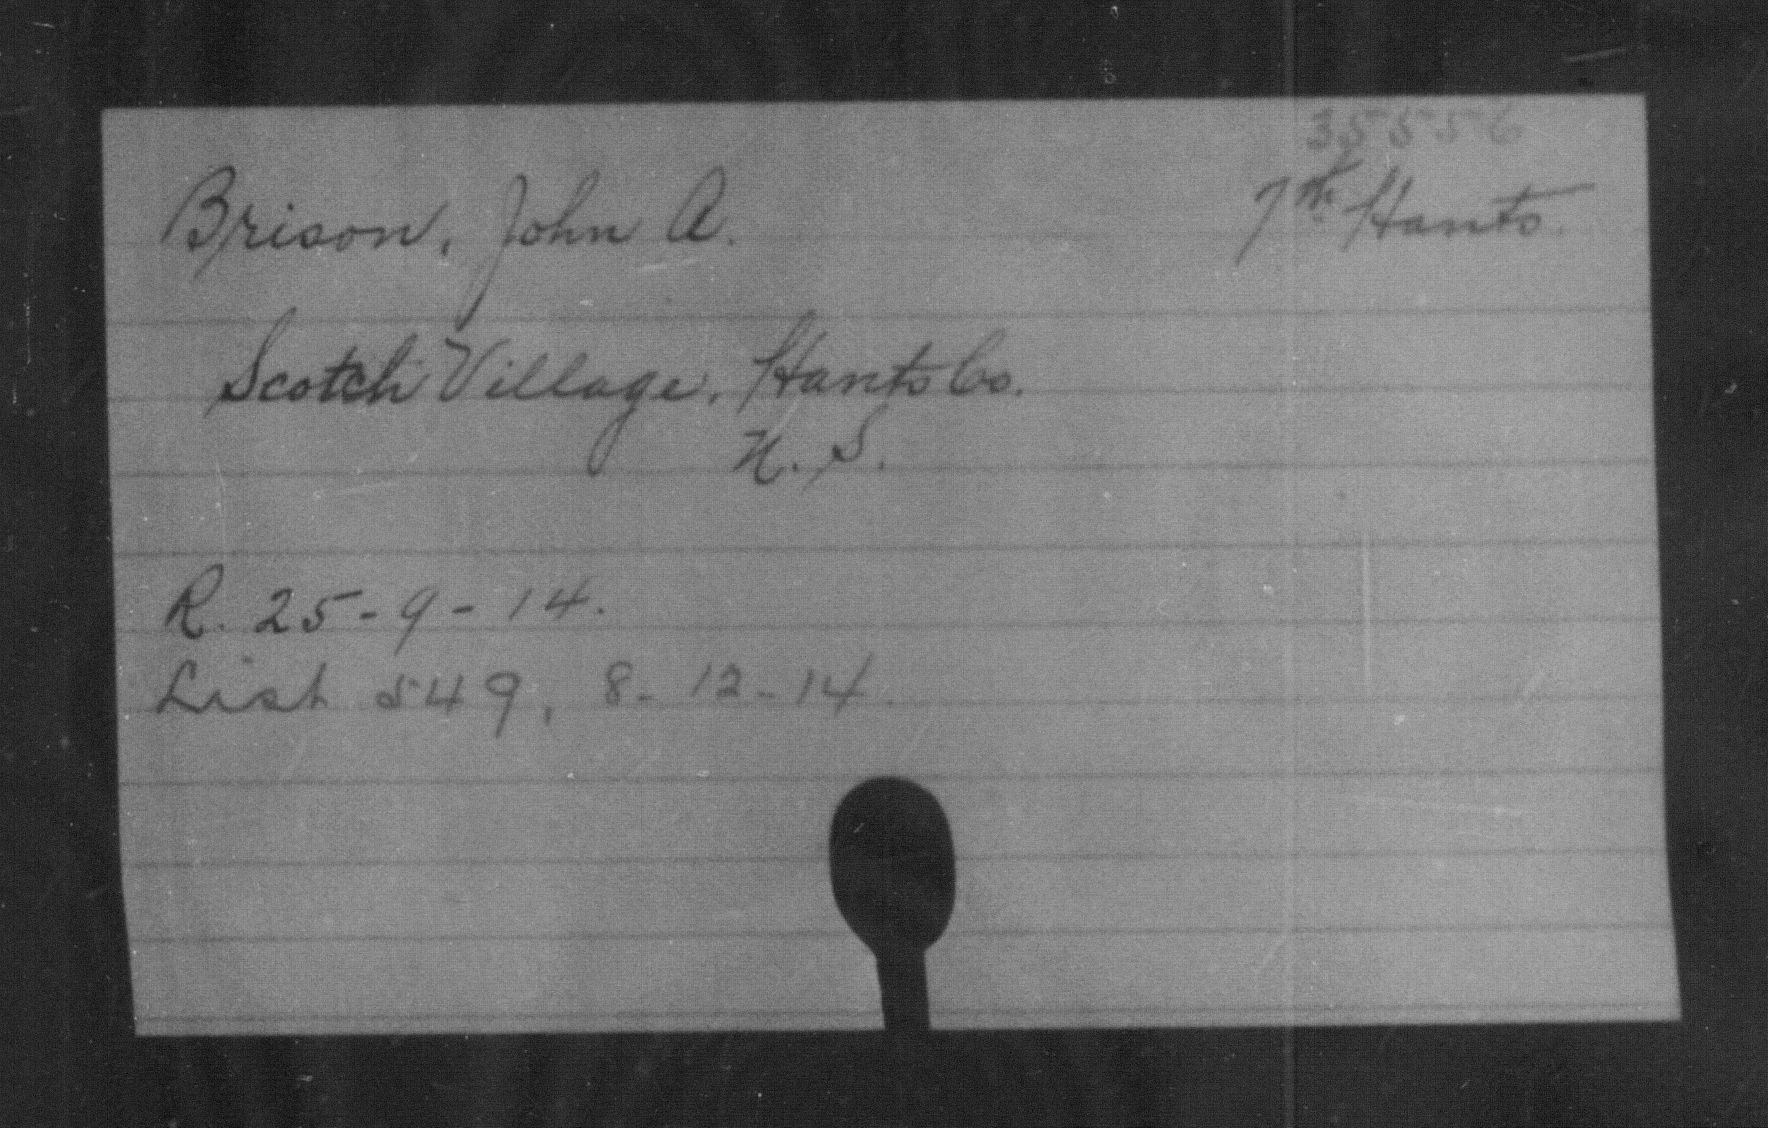 35556
Brison, John A. 7th Hants.
Scotch Village, Hants Co.
N. S.
R. 25-9-14.
List 549, 8-12-14.